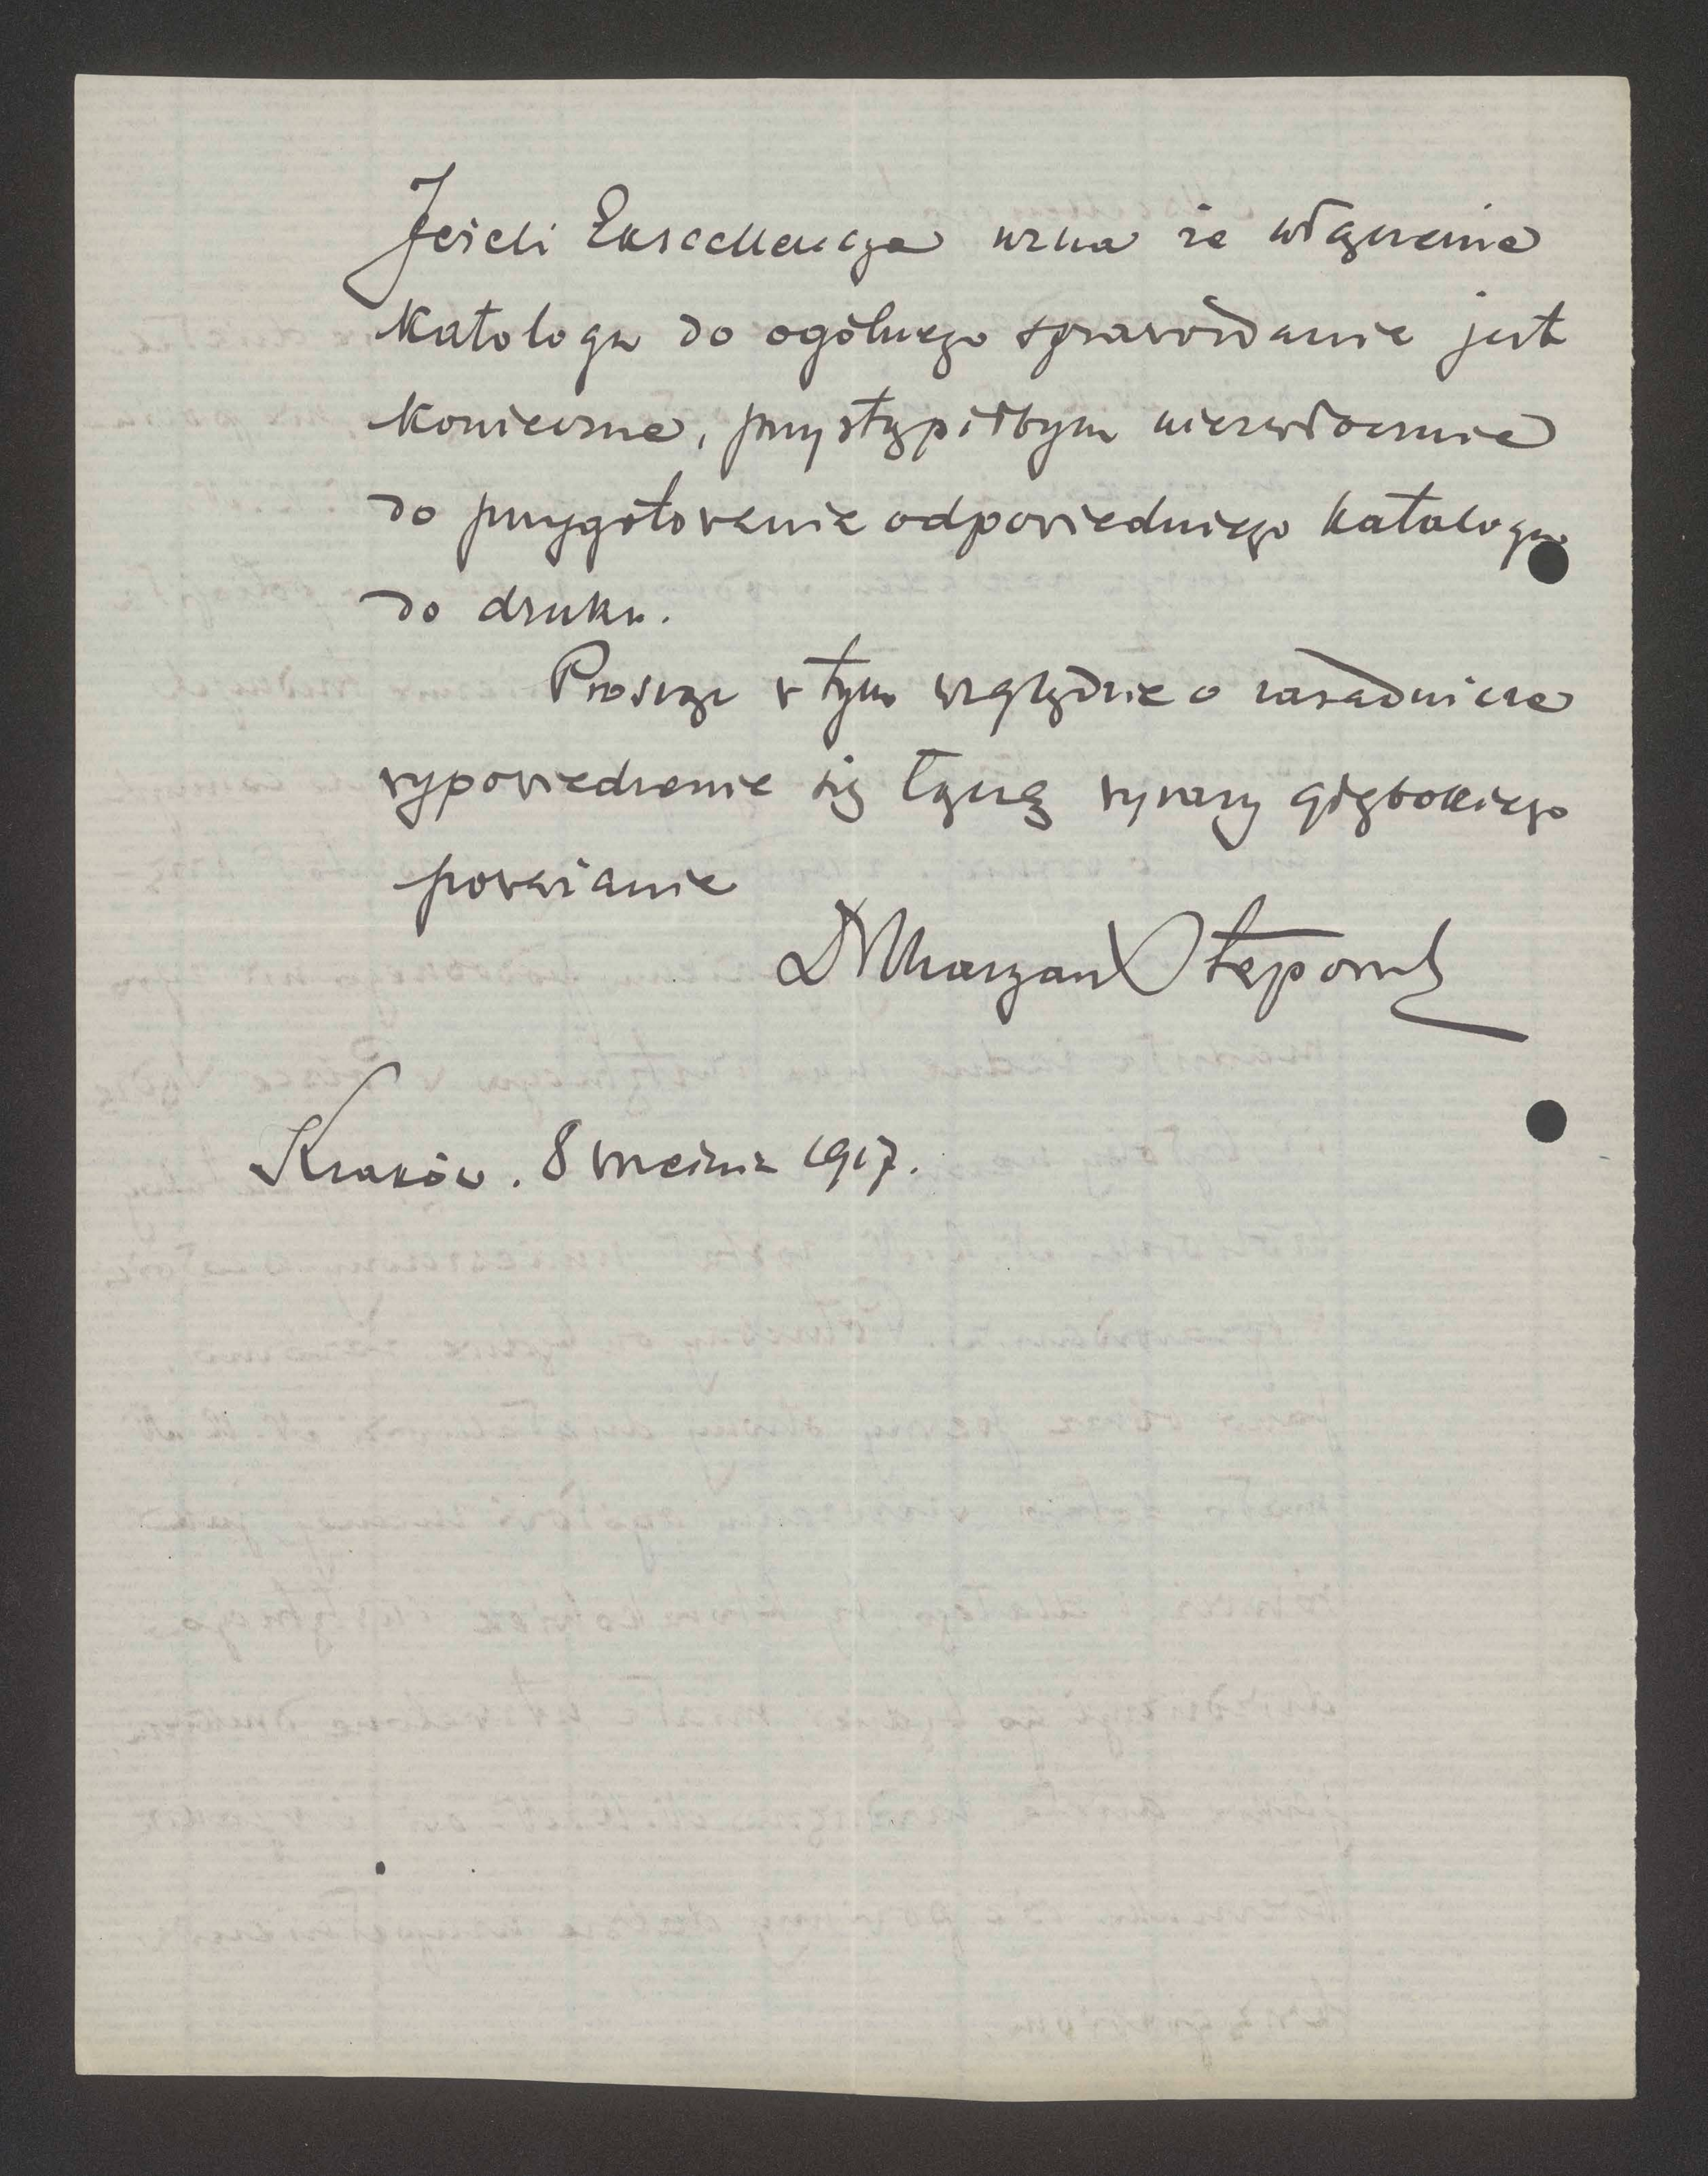 Jeżeli Ekscellencya uzna że włączenie
katalogu do ogólnego sprawozdania jest
konieczne, przystąpiłbym niezwłocznie
do przygotowania odpowiedniego katalogu
do druku.
Proszę w tym względzie o zasadnicze
wypowiedzenie się łączę wyrazy głębokiego
poważania
Dr Maryan Stępowski
Kraków. 8 września 1917.